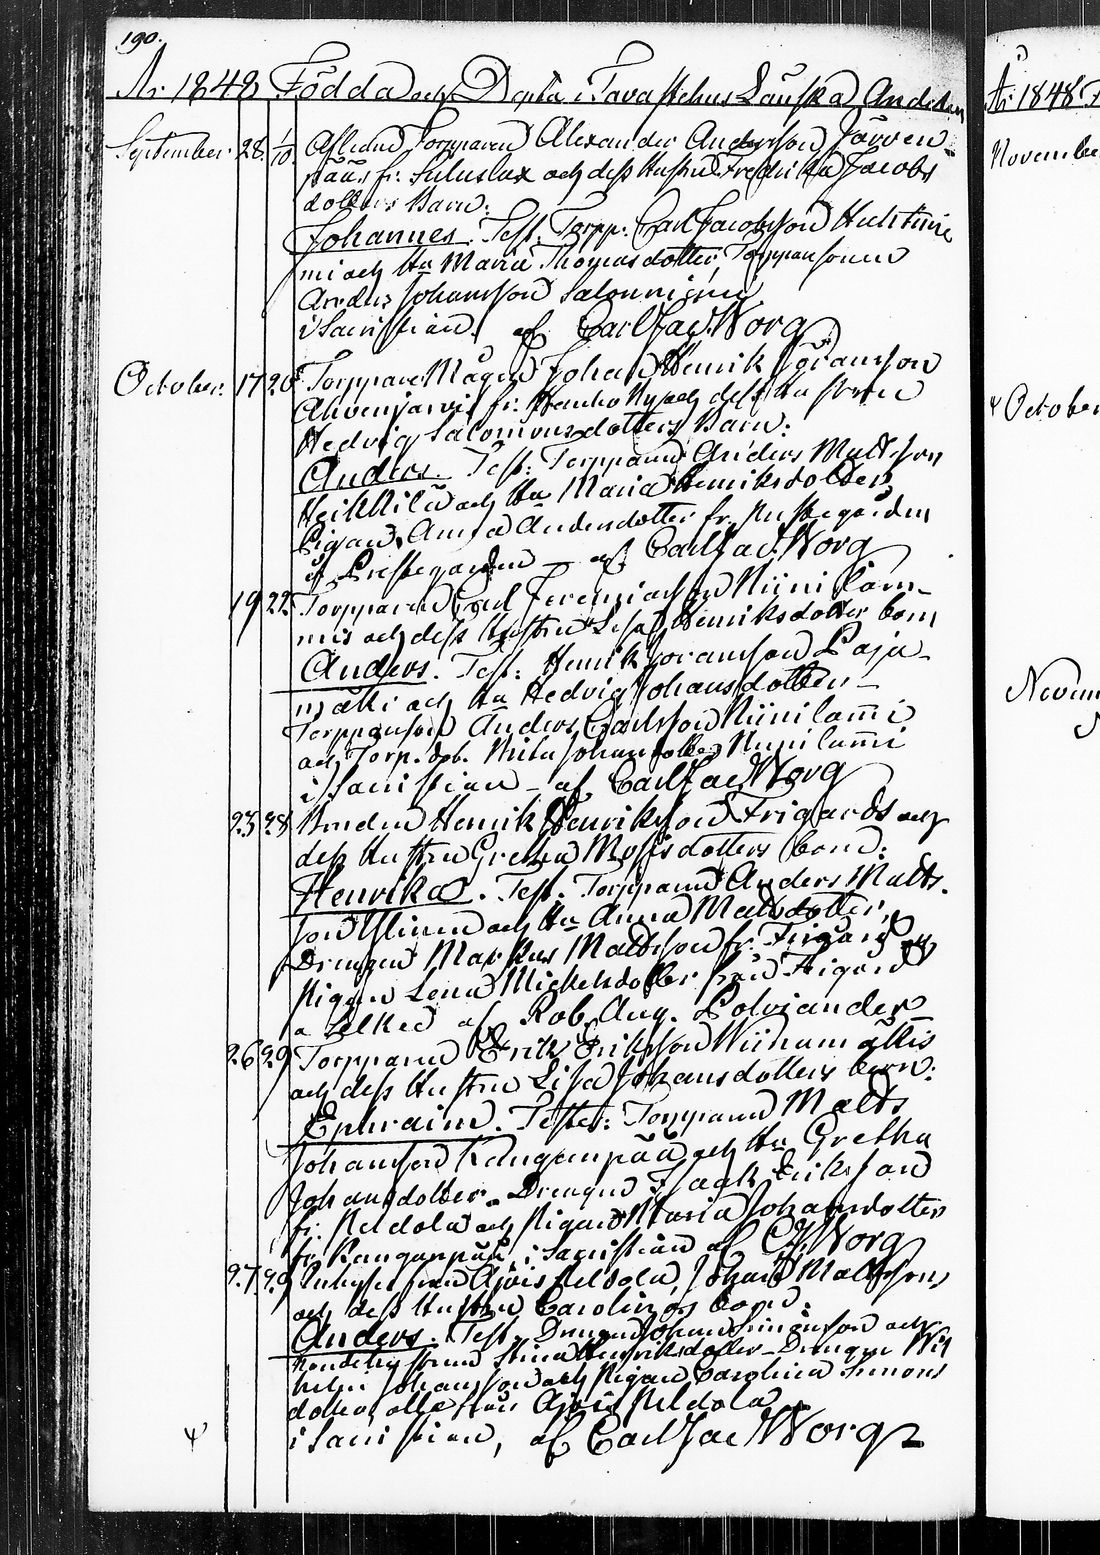 190.
År 1848 Födda och Döpta i Tavastehus Landska Andelen
September. 28. 1/10. Aflidne Torpparen Alexander Andersson Järven-
pää, fr. och dess Hustru Fredrika Jacobs
dotters Barn:
Johannes. Test. Torpp: Carl Jacobsson Huhtinie
mi och Hu Maria Thomasdotter, Torpparsonen
Anders Johansson Salonniemi
i Sacristian. af Carl Jac. Worg
October. 17 20 Torppare Mågen Johan Henrik Göransson
Ahvenjarvi fr. och dess hustru
Hedvig Salomonsdotters Barn:
Anders. Test: Torpparen Anders Mattsson
Heikkilä och Hu Maria Henriksdotter,
Pigan Anna Andersdotter fr. Prestegården
i Prestegården – af Carl Jac. Worg
19 22 Torpparen Carl Jeremiasson Niinilam-
mis och dess Hustru Lisa Henriksdotter barn
Anders. Test: Henrik Göransson Paja-
mäki och Hu Hedvig Johansdotter –
Torpparson Anders Carlsson Niinilam̄i
och Torp. dot. Johansdotter Niinilam̄i
i Sacristian – af Carl Jac Worg
23 28 Bonden Henrik Henriksson Frigårds och
dess Hustru Gretha Mosisdotters barn:
Henrika. Test. Torpparen Anders Matts-
son och Hu Anna Mattsdotter,
Drengen Markus Mattsson fr. Frigård och
Pigan Lena Michelsdotter från Frigård
a af Rob. Aug. Polviander
26 29 Torpparen Erik Eriksson Wiinamäkis
och dess Hustru Lisa Johansdotters barn:
Ephraim. Test: Torpparen Matts
Johansson Kanganpää och Hu Gretha
Johansdotter. Drengen Isaak Eriksson
fr. Peldola och Pigan Maria Johansdotter
fr. Kanganpää, i Sacristian af CJ Worg
27 29 från Ajois Peldola, Johan Mattssons
och dess Hustru Carolinas barn:
Anders. Test. Drengen Johan Simonsson och
Stina Henriksdotter – Drengen Wil
helm Johansson och Pigan Carolina Simons
dotter, alla från Ajois Peldola
i Sacristian, af Carl Jac Worg
År 1848 F
November
October